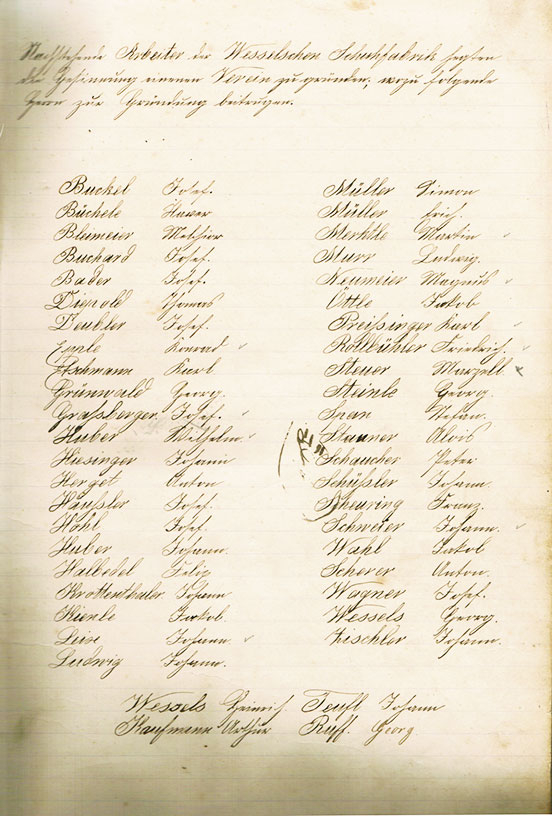 Nachstehende Arbeiter der Wesselschen Schuhfabrik hegten
die Gesinnung einen Verein zu gründen, wozu folgende
Herrn zur Gründung beitrugen.
Buckel Josef.
Büchele Xaver
Blumeier Melchior
Buchard Josef.
Bader Josef.
Diepold Thomas
Deubler Josef.
Epple Konrad
Eschmann Karl
Grünwald Georg.
Grassberger Josef.
Huber Wilhelm
Hiesinger Johann
Herget Anton
Häussler Josef.
Höhl Josef.
Huber Johann.
Halbedel Felix
Krottenthaler Johann
Kienle Jakob.
Johann
Ludwig Johann.
Müller Simon
Müller Erich.
Merktle Martin
Murr Ludwig.
Neumeier Magnus
Öttle Jakob
Preißinger Karl
Rollbühler Friedrich.
Steuer Marzell
Steinle Georg.
Stefan.
Stanner Alois
Schaucher Peter
Schüßler Johann
Scheuring Franz.
Schweter Johann.
Wahl Jakob
Scherer Anton.
Wagner Josef.
Wessels Georg.
Zischler Johann.
Wessels Heinrich Teufl Johann
Kaufmann Arthur Ruff. Georg